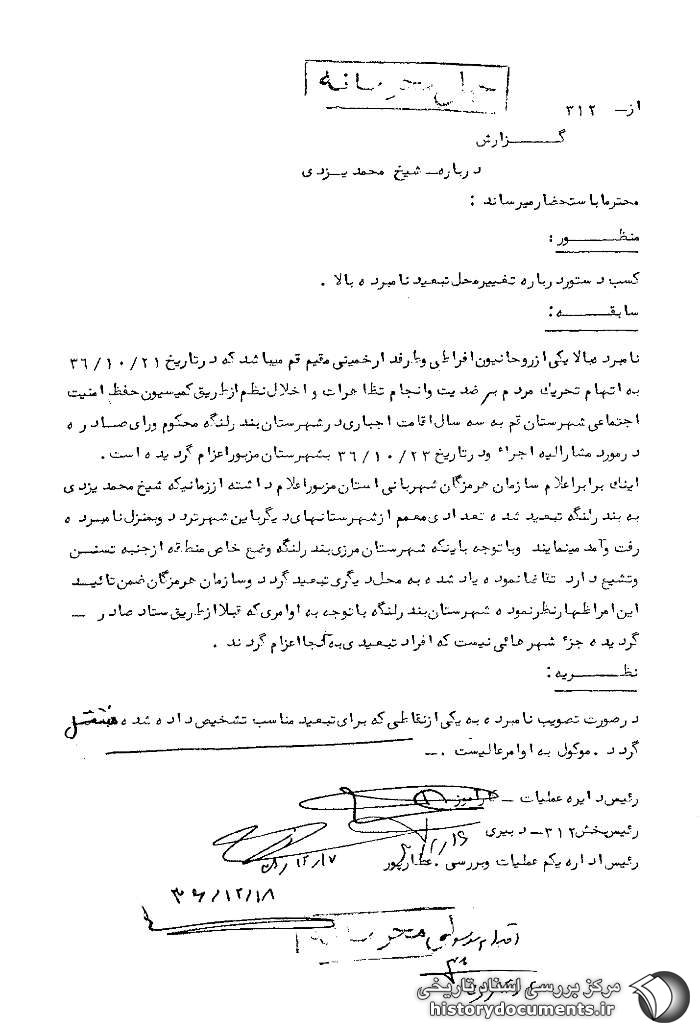 خیلی محرمانه
از — ۳۱۲
گزارش
درباره — شیخ محمد یزدی
محترما باستحضار میرساند :
منظور :
کسب دستور درباره تغییر محل تبعید نامبرده بالا .
سابقه :
نامبرده بالا یکی از روحانیون افراطی و طرفدار خمینی مقیم قم میباشد که در تاریخ ۳۶/۱۰/۲۱
به اتهام تحریک مردم بر ضدیت و انجام تظاهرات و اخلال نظم از طریق کمیسیون حفظ امنیت
اجتماعی شهرستان قم به سه سال اقامت اجباری در شهرستان بندرلنگه محکوم و رای صادره
در مورد مشارالیه اجراء و در تاریخ ۳۶/۱۰/۲۳ بشهرستان مزبور اعزام گردیده است .
اینک برابر اعلام سازمان هرمزگان شهربانی استان مزبور اعلام داشته از زمانیکه شیخ محمد یزدی
به بندرلنگه تبعید شده تعدادی معمم از شهرستانهای دیگر باین شهر تردد و بمنزل نامبرده
رفت و آمد مینمایند و با توجه باینکه شهرستان مرزی بندرلنگه وضع خاص منطقه از جنبه تسنن
و تشیع دارد تقاضا نموده یاد شده به محل دیگری تبعید گردد و سازمان هرمزگان ضمن تائید
این امر اظهار نظر نموده شهرستان بندرلنگه با توجه به اوامری که قبلا از طریق ستاد صادر —
گردیده جزء شهرهائی نیست که افراد تبعیدی به آنجا اعزام گردند .
نظریه :
در صورت تصویب نامبرده به یکی از نقاطی که برای تبعید مناسب تشخیص داده شده منتقل
گردد . موکول به اوامر عالیست . —
رئیس دایره عملیات —
رئیس بخش ۳۱۲ — دبیری
رئیس اداره یکم عملیات و بررسی . عطارپور
۱۲/۱۶
۱۲/۱۷
۳۶/۱۲/۱۸
محرمانه
مرکز بررسی اسناد تاریخی
historydocuments.ir